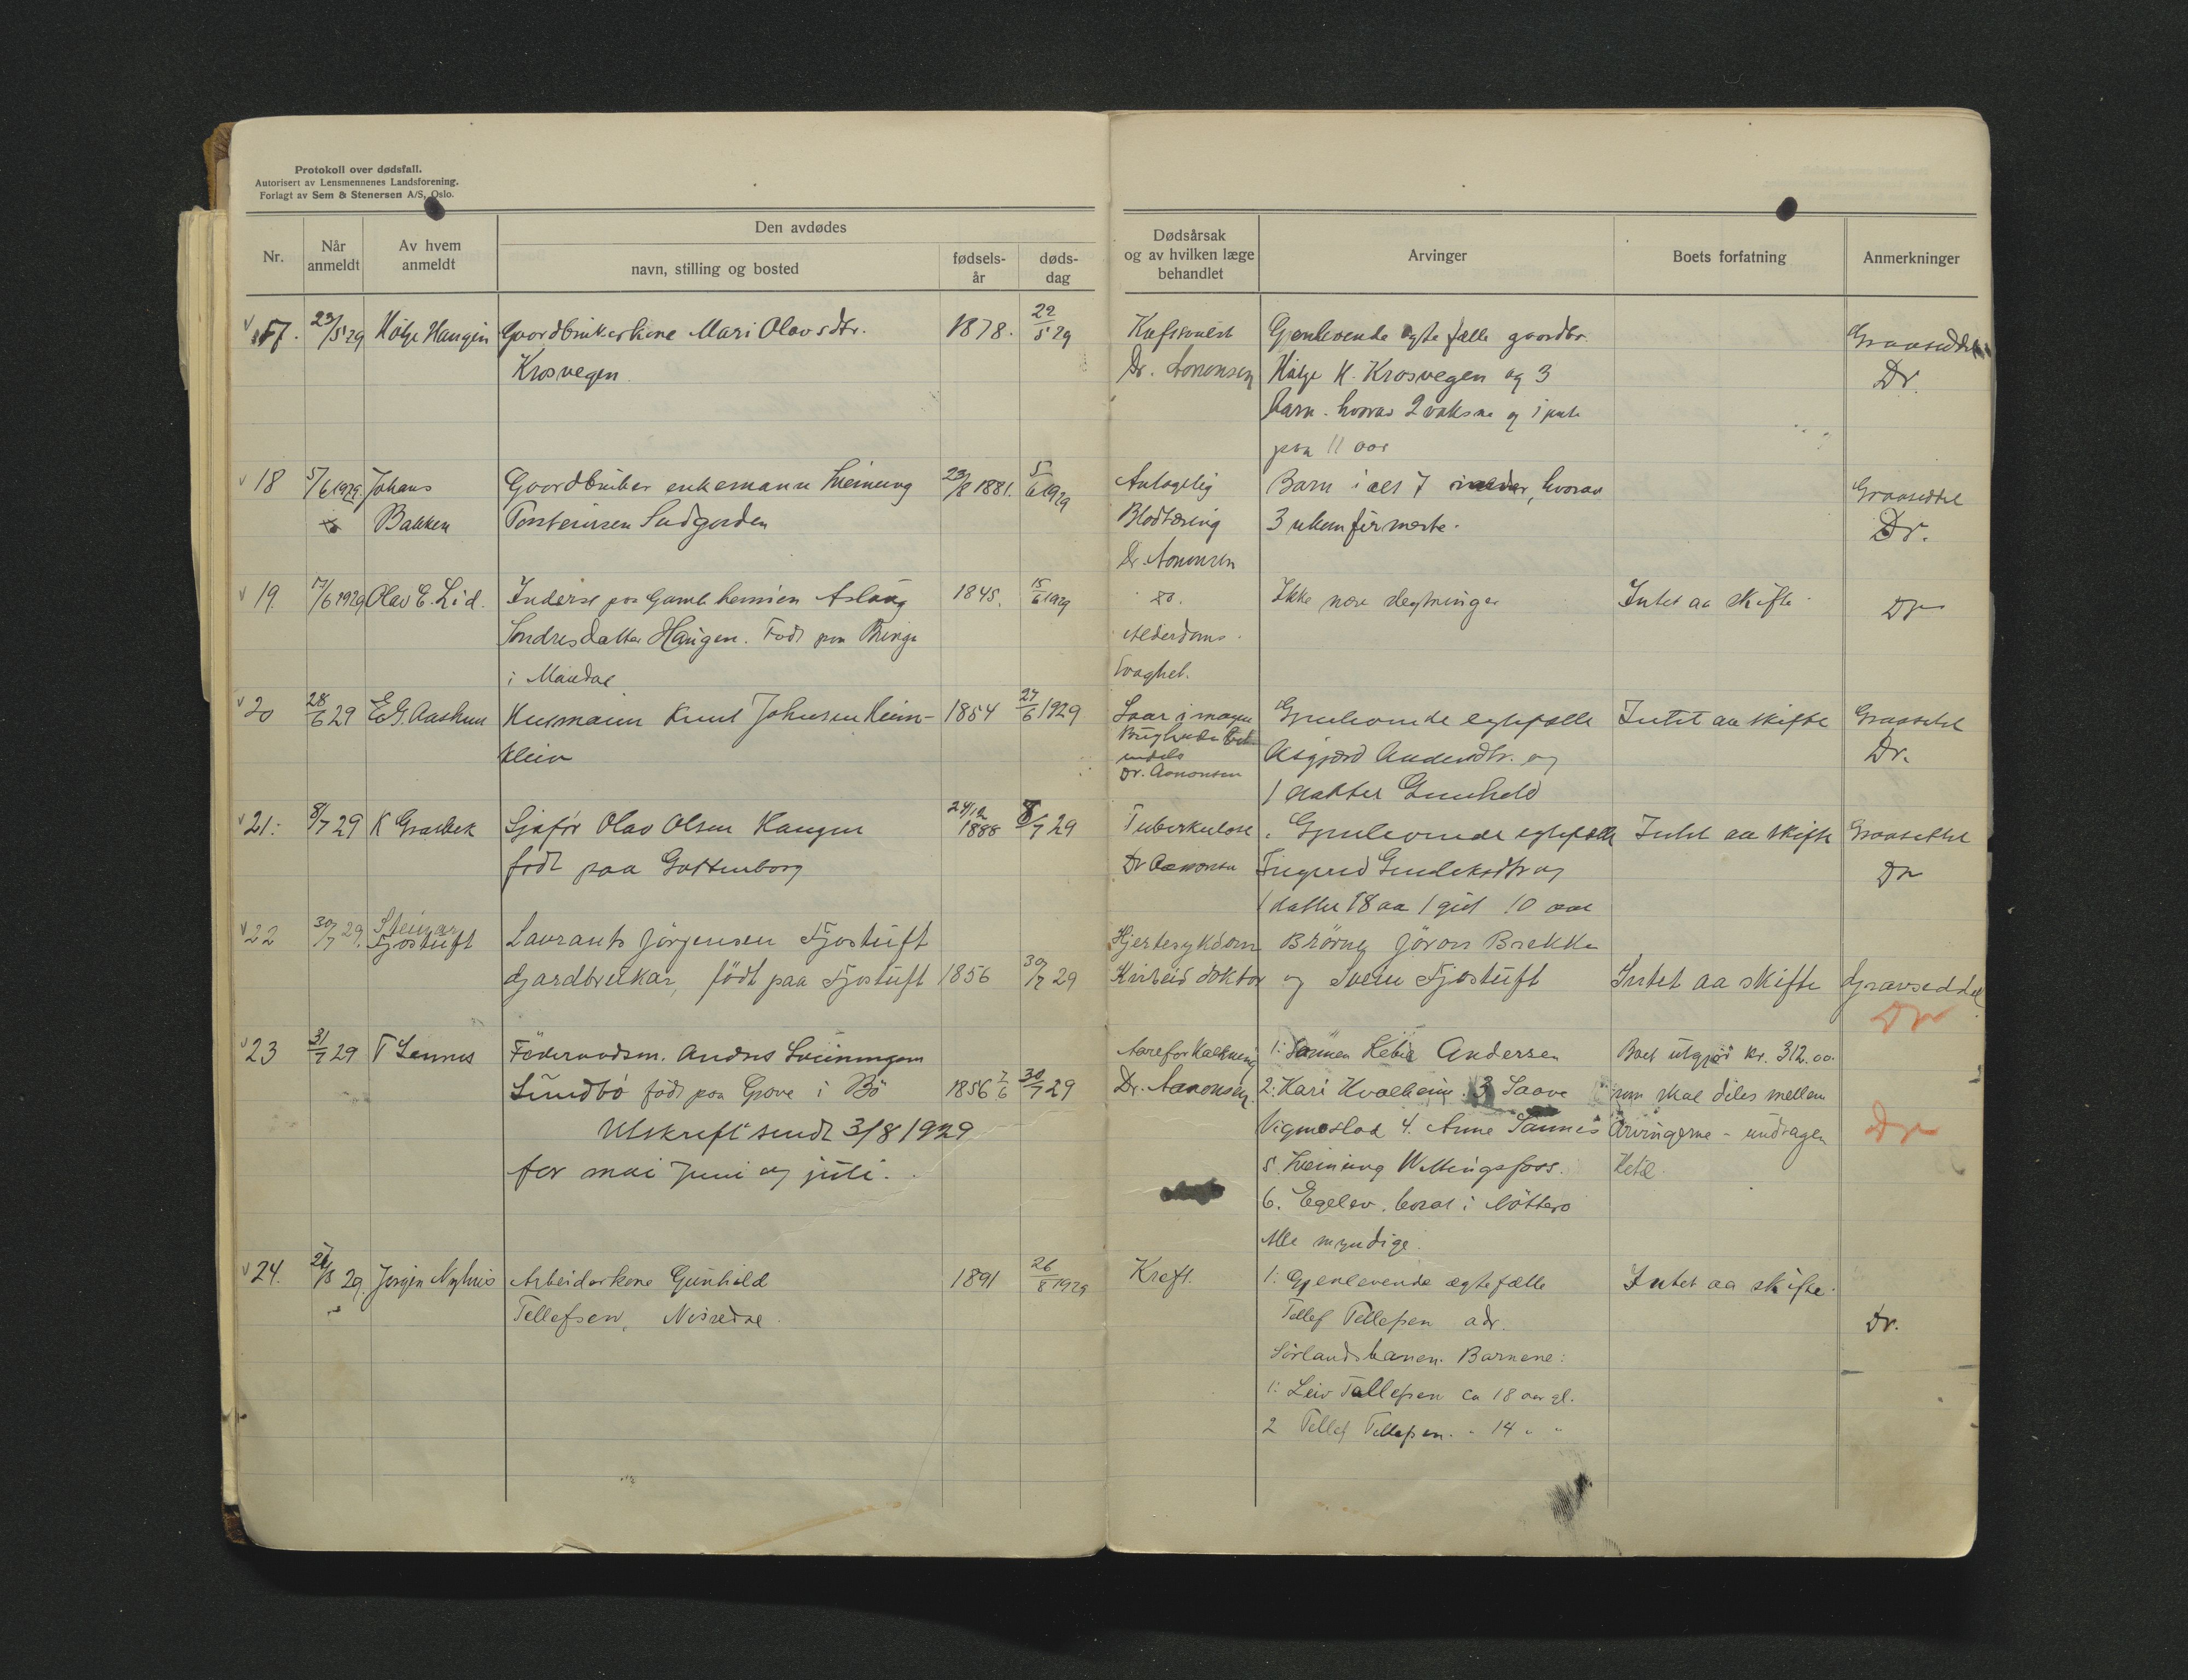 Protokoll over dødsfall.
Autorisert av Lensmennenes Landsforening.
Forlagt av Sem & Stenersen A/S, Oslo.
Nr.
Når anmeldt
Av hvem anmeldt
Den avdødes
navn, stilling og bosted
fødsels-år
døds-dag
Dødsårsak og av hvilken læge behandlet
Arvinger
Boets forfatning
Anmerkninger
17. 23/5 29 Hølje Haugen Goordbrukerkone Mari Olavsdtr. 1878. 22/5 29
Krosvegen
Dr. Aanonsen
Gjenlevende egtefælle goordbr.
Hølje H. Krosvegen og 3
barn. hvorav 2 voksne og 1 jente
paa 11 aar
Graaseddel
Dr.
18 5/6 1929. Johans Goordbruker enkemann Sveinung 23/8 1881. 5/6 1929
Bakken Torsteinsen Sudgarden
Antagelig
Blodtæring
Dr. Aanonsen
Barn i alt 7 hvorav
3 ukonfirmerte.
Graaseddel
Dr.
19. 17/6 1929 Olav E. Lid. Inderst paa Gamleheimen Aslaug 1845. 15/6 1929
Sondresdatter Haugen. Født paa
i Mandal
Do.
Alderdoms
svaghet.
Ikke nære slegtninger
Intet aa skifte
Dr
20 28/6 29 E G. Aashum Husmann Knut Johnsen Heim- 1854 27/6 1929
kleiv
Saar i magen
Dr. Aanonsen
Gjenlevende egtefælle
Asgjærd Andersdtr. og
1 datter Gunhild
Intet aa skifte
Graaseddel
Dr.
21: 8/7 29 K Graabek Sjafør Olav Olsen Haugen 24/12 1888 8/7 29
født paa Gottenborg
Tuberkulose
Dr Aanonsen
Gjenlevende egtefælle
Gundeksdtr og
1 datter 18 aa 1 gut 10 aar
Intet aa skifte
Graaseddel
Dr
22 30/7 29. Steinar
Fjostuft
Laurants Jørgensen Fjostuft
Gjardbrukar, født paa Fjostuft 1856 30/7 29
Hjertesykdom
Kviteid doktor
Brørne Jøran Brekke
og Svein Fjostuft
Intet aa skifte
Gravseddel
Dr
23 31/7 29 T Sannes Føderaadsm. Andres Sveinungsen
Sundbø født paa Grave i Bø 1856 7/6 30/7 29
Utskrift sendt 3/8 1929
for mai juni og juli.
Aareforkalkning
Dr. Aanonsen
1: Andersen
2: Kari Kvalheim. 3 Saave
Vigmostad 4. Anne Sannes
5 Sveinung Wittingsfoss.
6. Egelev. bosat i Nøtterø
Alle myndige.
Boet utgjør kr. 312.00
som skal deles mellem
Arvingerne - undtagen
Ketil
Dr
24. 27/8 29. Jørgen Nyhus Arbeiderkone Gunhild 1891 26/8 1929
Tellefsen, Nisredal.
Kreft.
1: Gjenlevende ægtefælle
Tellef Tellefsen adr.
Sørlandsbanen. Barnene:
1: Leiv Tellefsen ca 18 aar gl.
2 Tellef Tellefsen. " 14 " "
Intet aa skifte.
Dr.